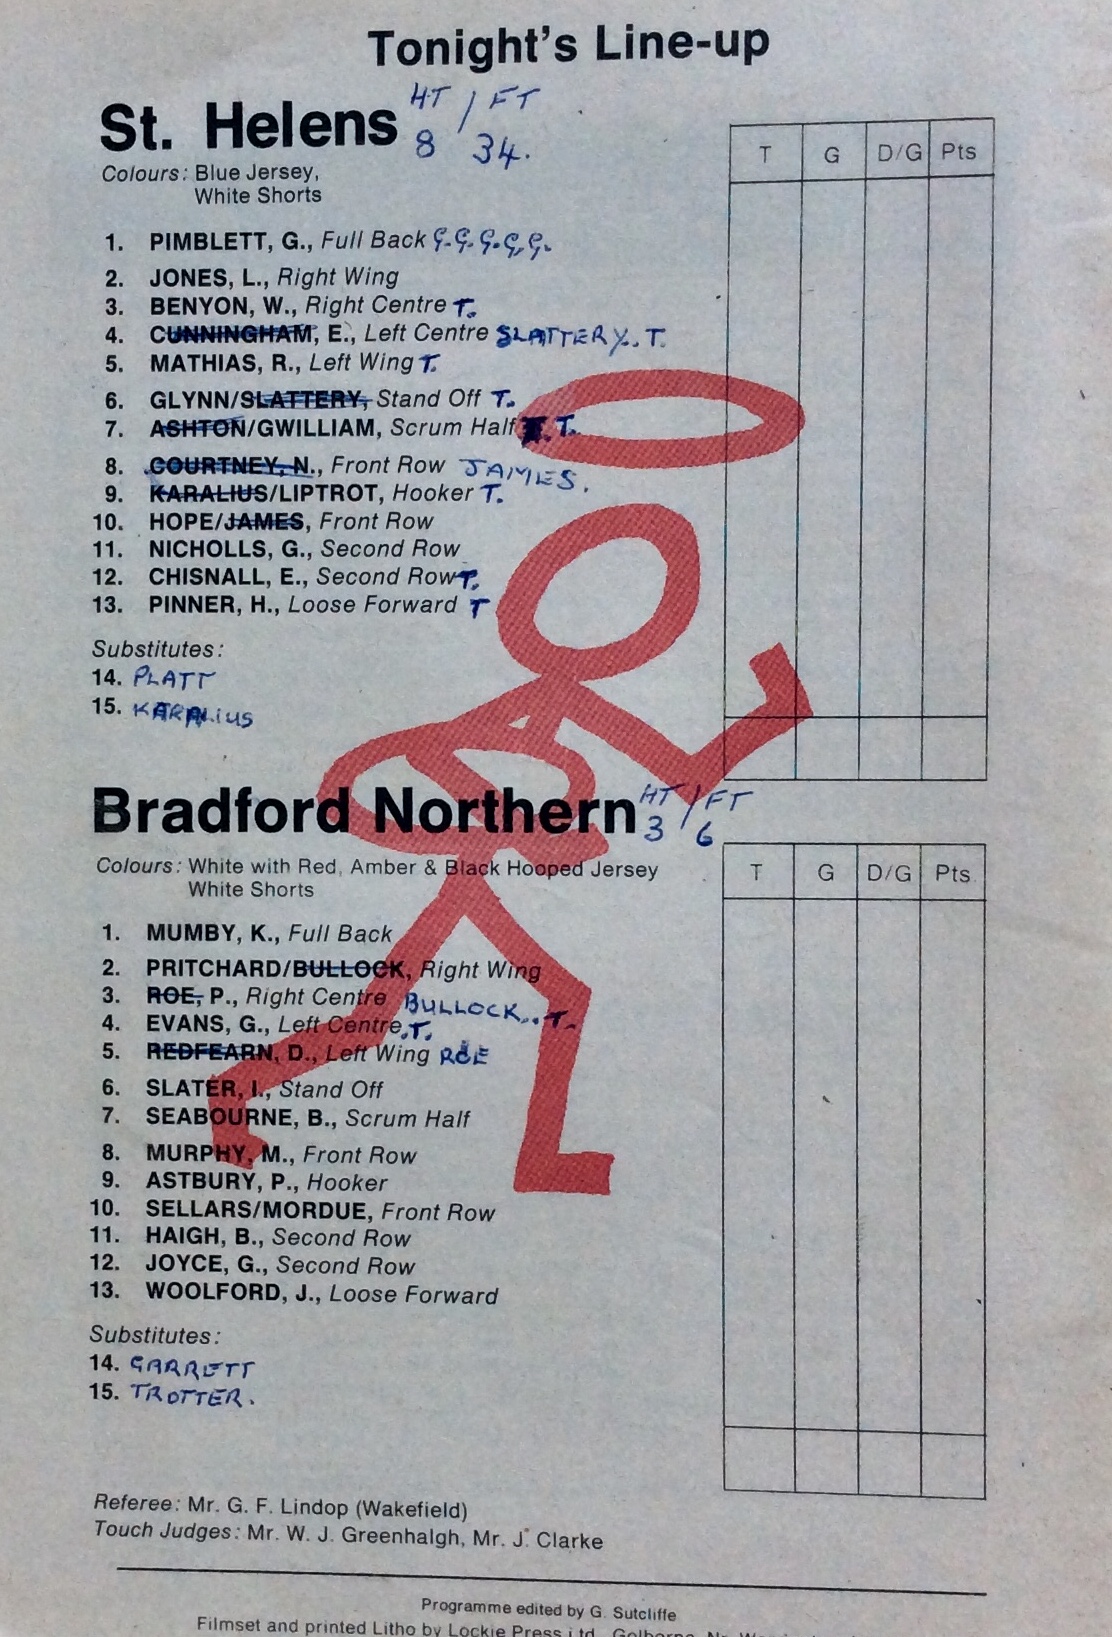 Tonight's Line-up
St. Helens HT / FT
8 34.
Colours: Blue Jersey,
White Shorts
T G D/G Pts
1. PIMBLETT, G., Full Back G.G.G.G.G.
2. JONES, L., Right Wing
3. BENYON, W., Right Centre T.
4. CUNNINGHAM, E., Left Centre SLATTERY.. T.
5. MATHIAS, R., Left Wing T.
6. GLYNN/SLATTERY, Stand Off T.
7. ASHTON/GWILLIAM, Scrum Half T.
8. COURTNEY, N., Front Row JAMES.
9. KARALIUS/LIPTROT, Hooker T.
10. HOPE/JAMES, Front Row
11. NICHOLLS, G., Second Row
12. CHISNALL, E., Second Row T.
13. PINNER, H., Loose Forward T
Substitutes:
14. PLATT
15. KARALIUS
Bradford Northern HT / FT
3 6
Colours: White with Red, Amber & Black Hooped Jersey
White Shorts
T G D/G Pts.
1. MUMBY, K., Full Back
2. PRITCHARD/BULLOCK, Right Wing
3. ROE, P., Right Centre BULLOCK... T.
4. EVANS, G., Left Centre .T.
5. REDFEARN, D., Left Wing ROE
6. SLATER, I., Stand Off
7. SEABOURNE, B., Scrum Half
8. MURPHY, M., Front Row
9. ASTBURY, P., Hooker
10. SELLARS/MORDUE, Front Row
11. HAIGH, B., Second Row
12. JOYCE, G., Second Row
13. WOOLFORD, J., Loose Forward
Substitutes:
14. GARRETT
15. TROTTER.
Referee: Mr. G. F. Lindop (Wakefield)
Touch Judges: Mr. W. J. Greenhalgh, Mr. J. Clarke
Programme edited by G. Sutcliffe
Filmset and printed Litho by Lockie Press Ltd., Golborne, Nr.